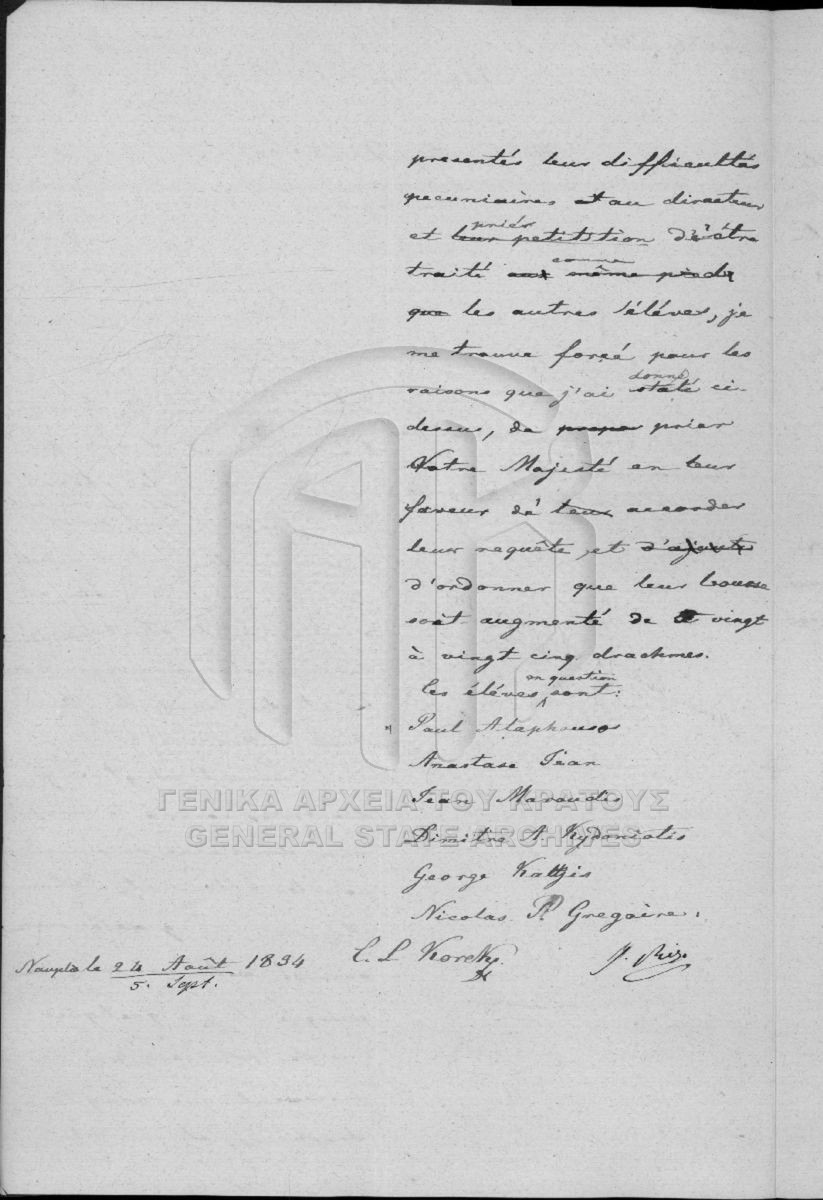 presentés leur difficultés
pecuniaires et au directeur
priér
et leur petitition d'être
comme
traité aux même pied
que les autres élèves, je
me trouve forçé pour les
donné
raisons que j'ai staté ci-
dessus, de prier
Votre Majesté en leur
faveur de leur accorder
leur requête, et d'ajouter
d'ordonner que leur bourse
soit augmenté de vingt
à vingt cinq drachmes.
en question
les élèves sont:
Paul Alaphouso
Anastase Jean
Jean Maroudis
Dimitre A. Kydoniotis
George Kattzis
Nicolas P. Gregoire.
Nauplie le 24 Août 1834
5. Sept.
ΓΕΝΙΚΑ ΑΡΧΕΙΑ ΤΟΥ ΚΡΑΤΟΥΣ
GENERAL STATE ARCHIVES